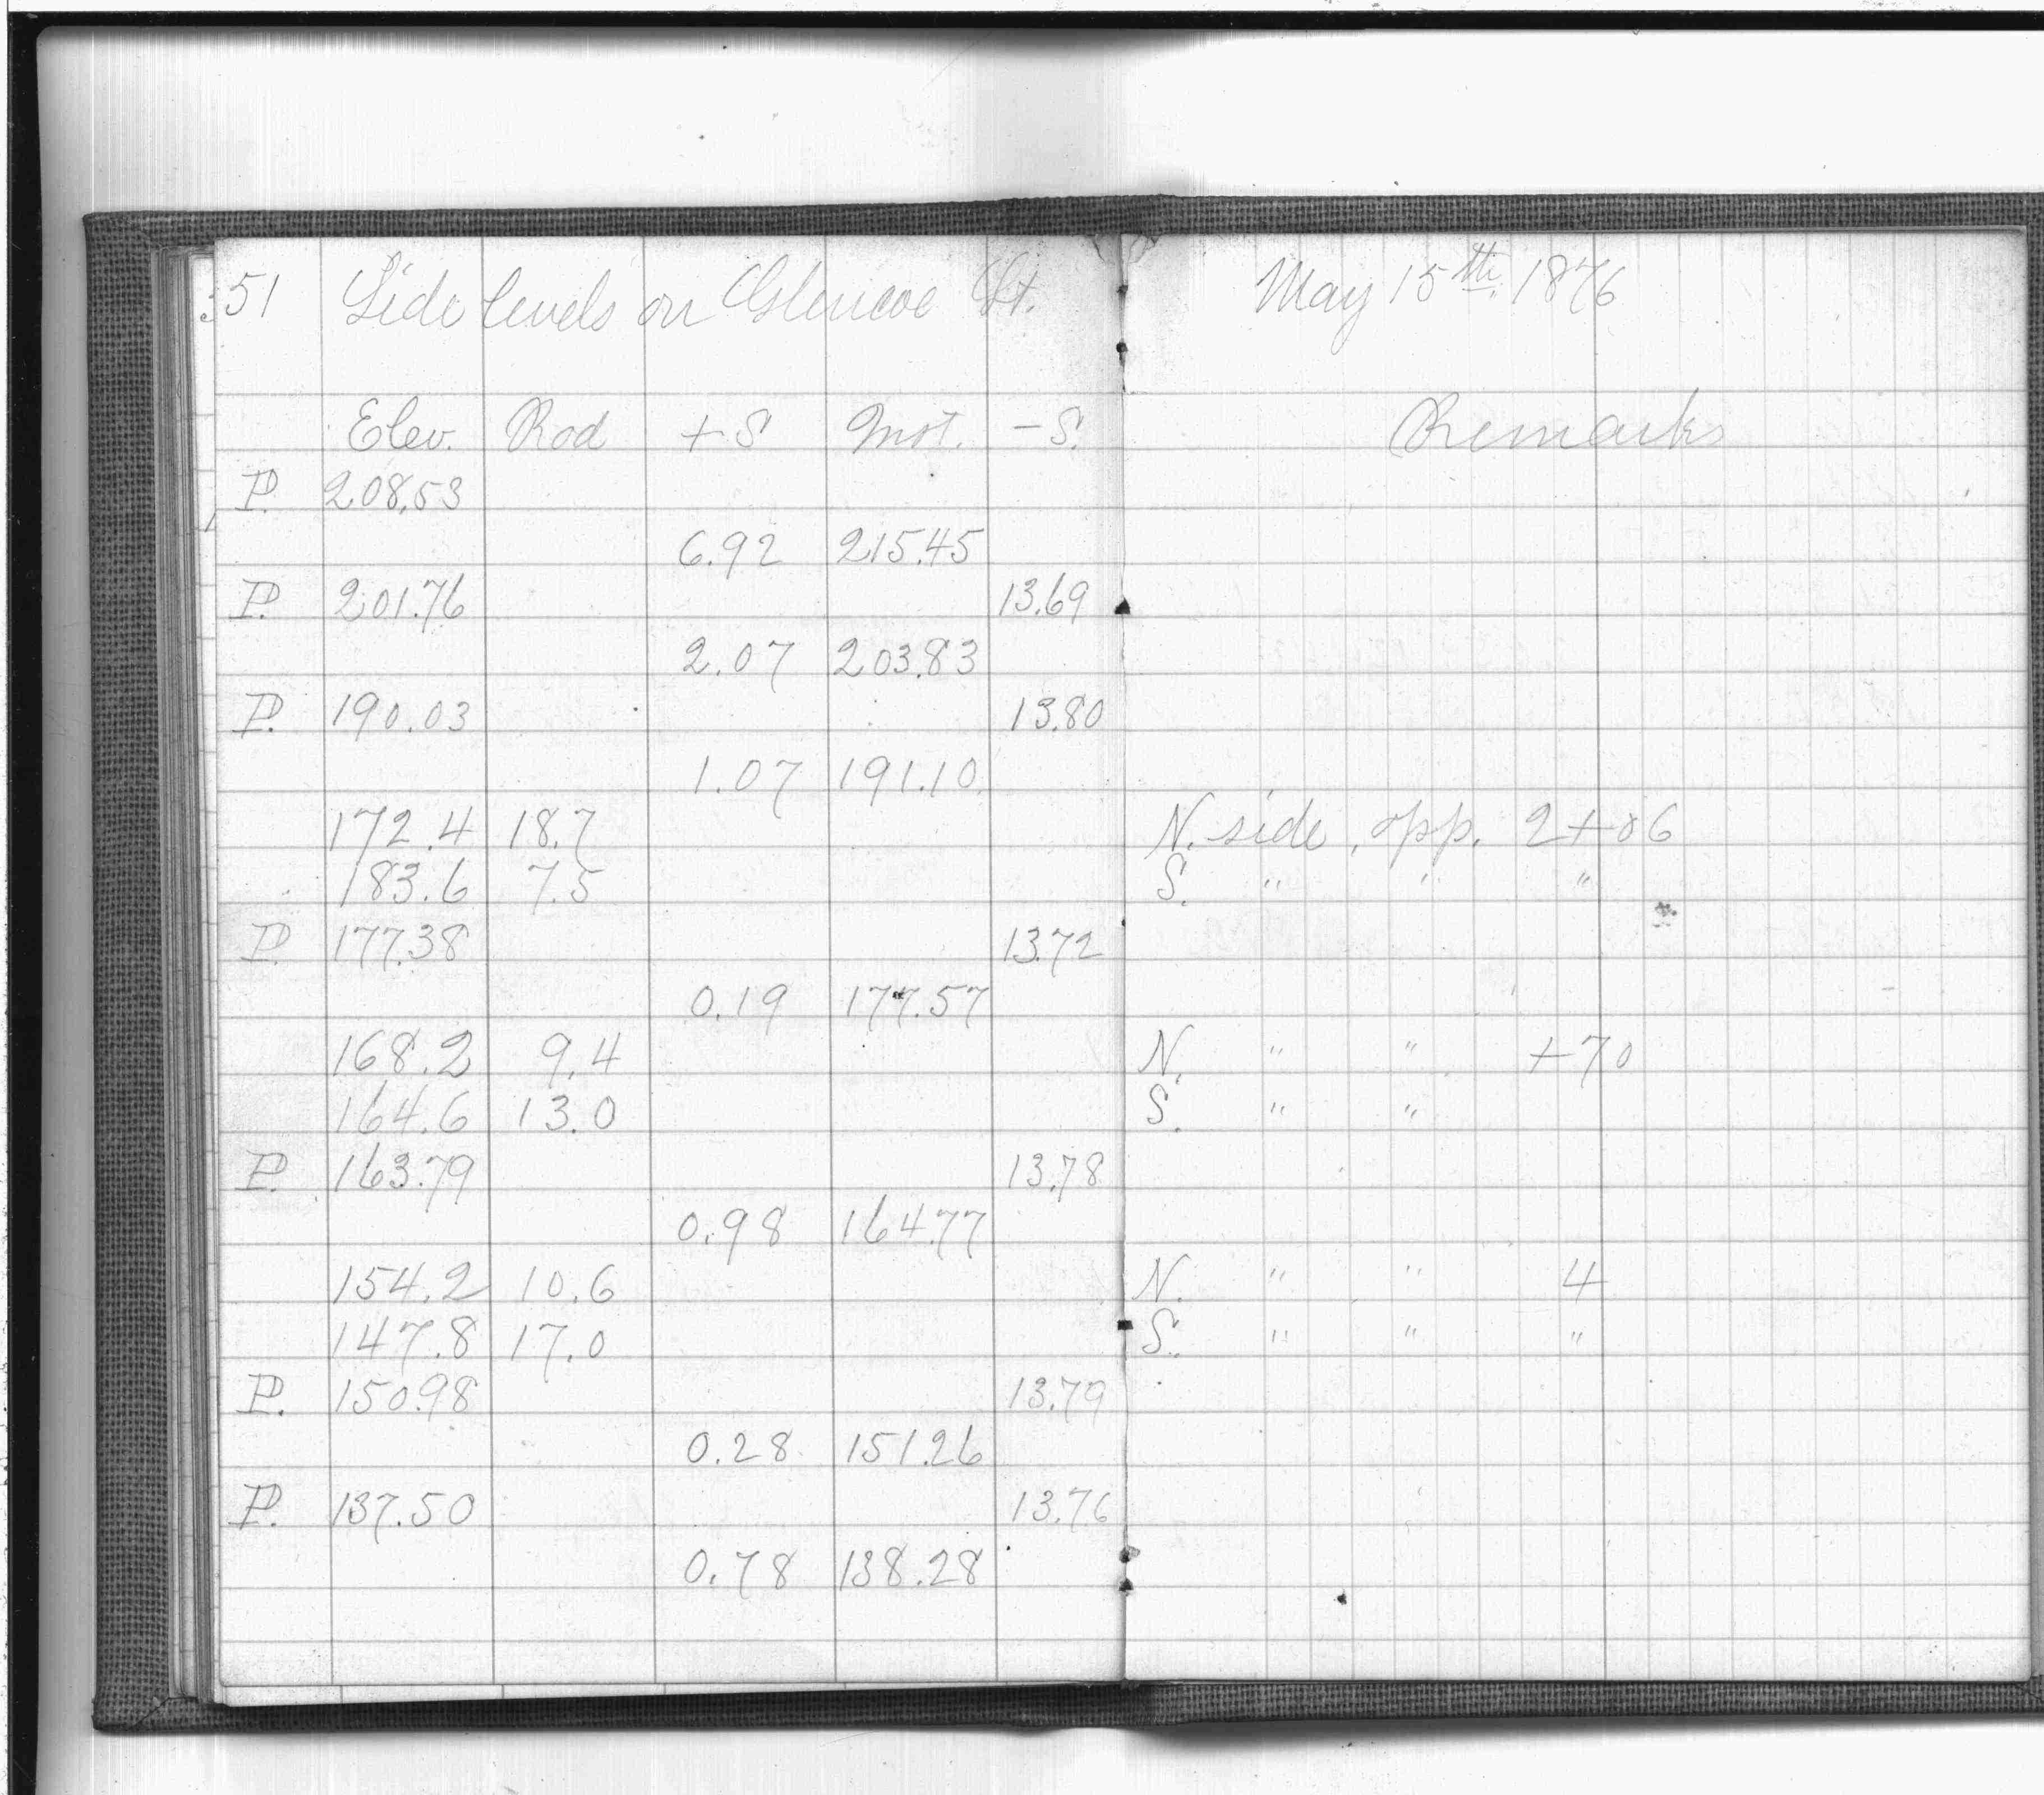 51 Side levels on Glencoe St. May 15th. 1876
Elev. Rod +S Inst. -S. Remarks
P. 208.53
6.92 215.45
P. 201.76 13.69
2.07 203.83
P. 190.03 13.80
1.07 191.10
172.4 18.7 N. side, opp. 2+06
183.6 7.5 S. " " "
P. 177.38 13.72
0.19 177.57
168.2 9.4 N. " " +70
164.6 13.0 S. " "
P. 163.79 13.78
0.98 164.77
154.2 10.6 N. " " 4
147.8 17.0 S. " " "
P. 150.98 13.79
0.28 151.26
P. 137.50 13.76
0.78 138.28